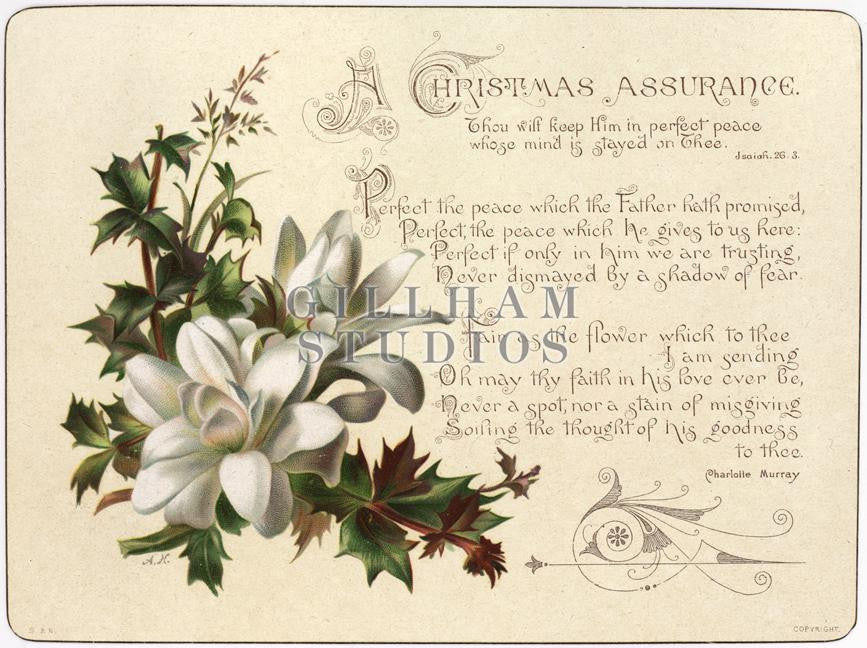 A CHRISTMAS ASSURANCE.
Thou wilt keep Him in perfect peace
whose mind is stayed on Thee.
Isaiah. 26. 3.
Perfect the peace which the Father hath promised,
Perfect, the peace which he gives to us here:
Perfect if only in him we are trusting,
Never dismayed by a shadow of fear.
GILLHAM
STUDIOS
Fair as the flower which to thee
I am sending
Oh may thy faith in his love ever be,
Never a spot, nor a stain of misgiving
Soiling the thought of his goodness
to thee.
Charlotte Murray
A.H.
COPYRIGHT.